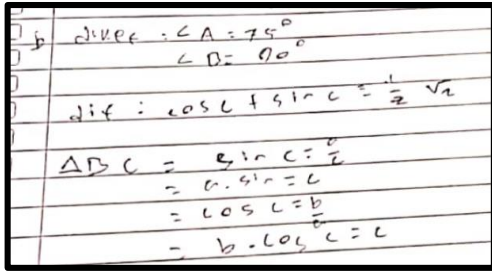 b diket : ∠A = 75°
∠B = 90°
dit : cos c + sin c = 1/2 √2
ΔBC = sin c = c/2
= a. sin = c
= cos c = b/c
= b. cos c = c